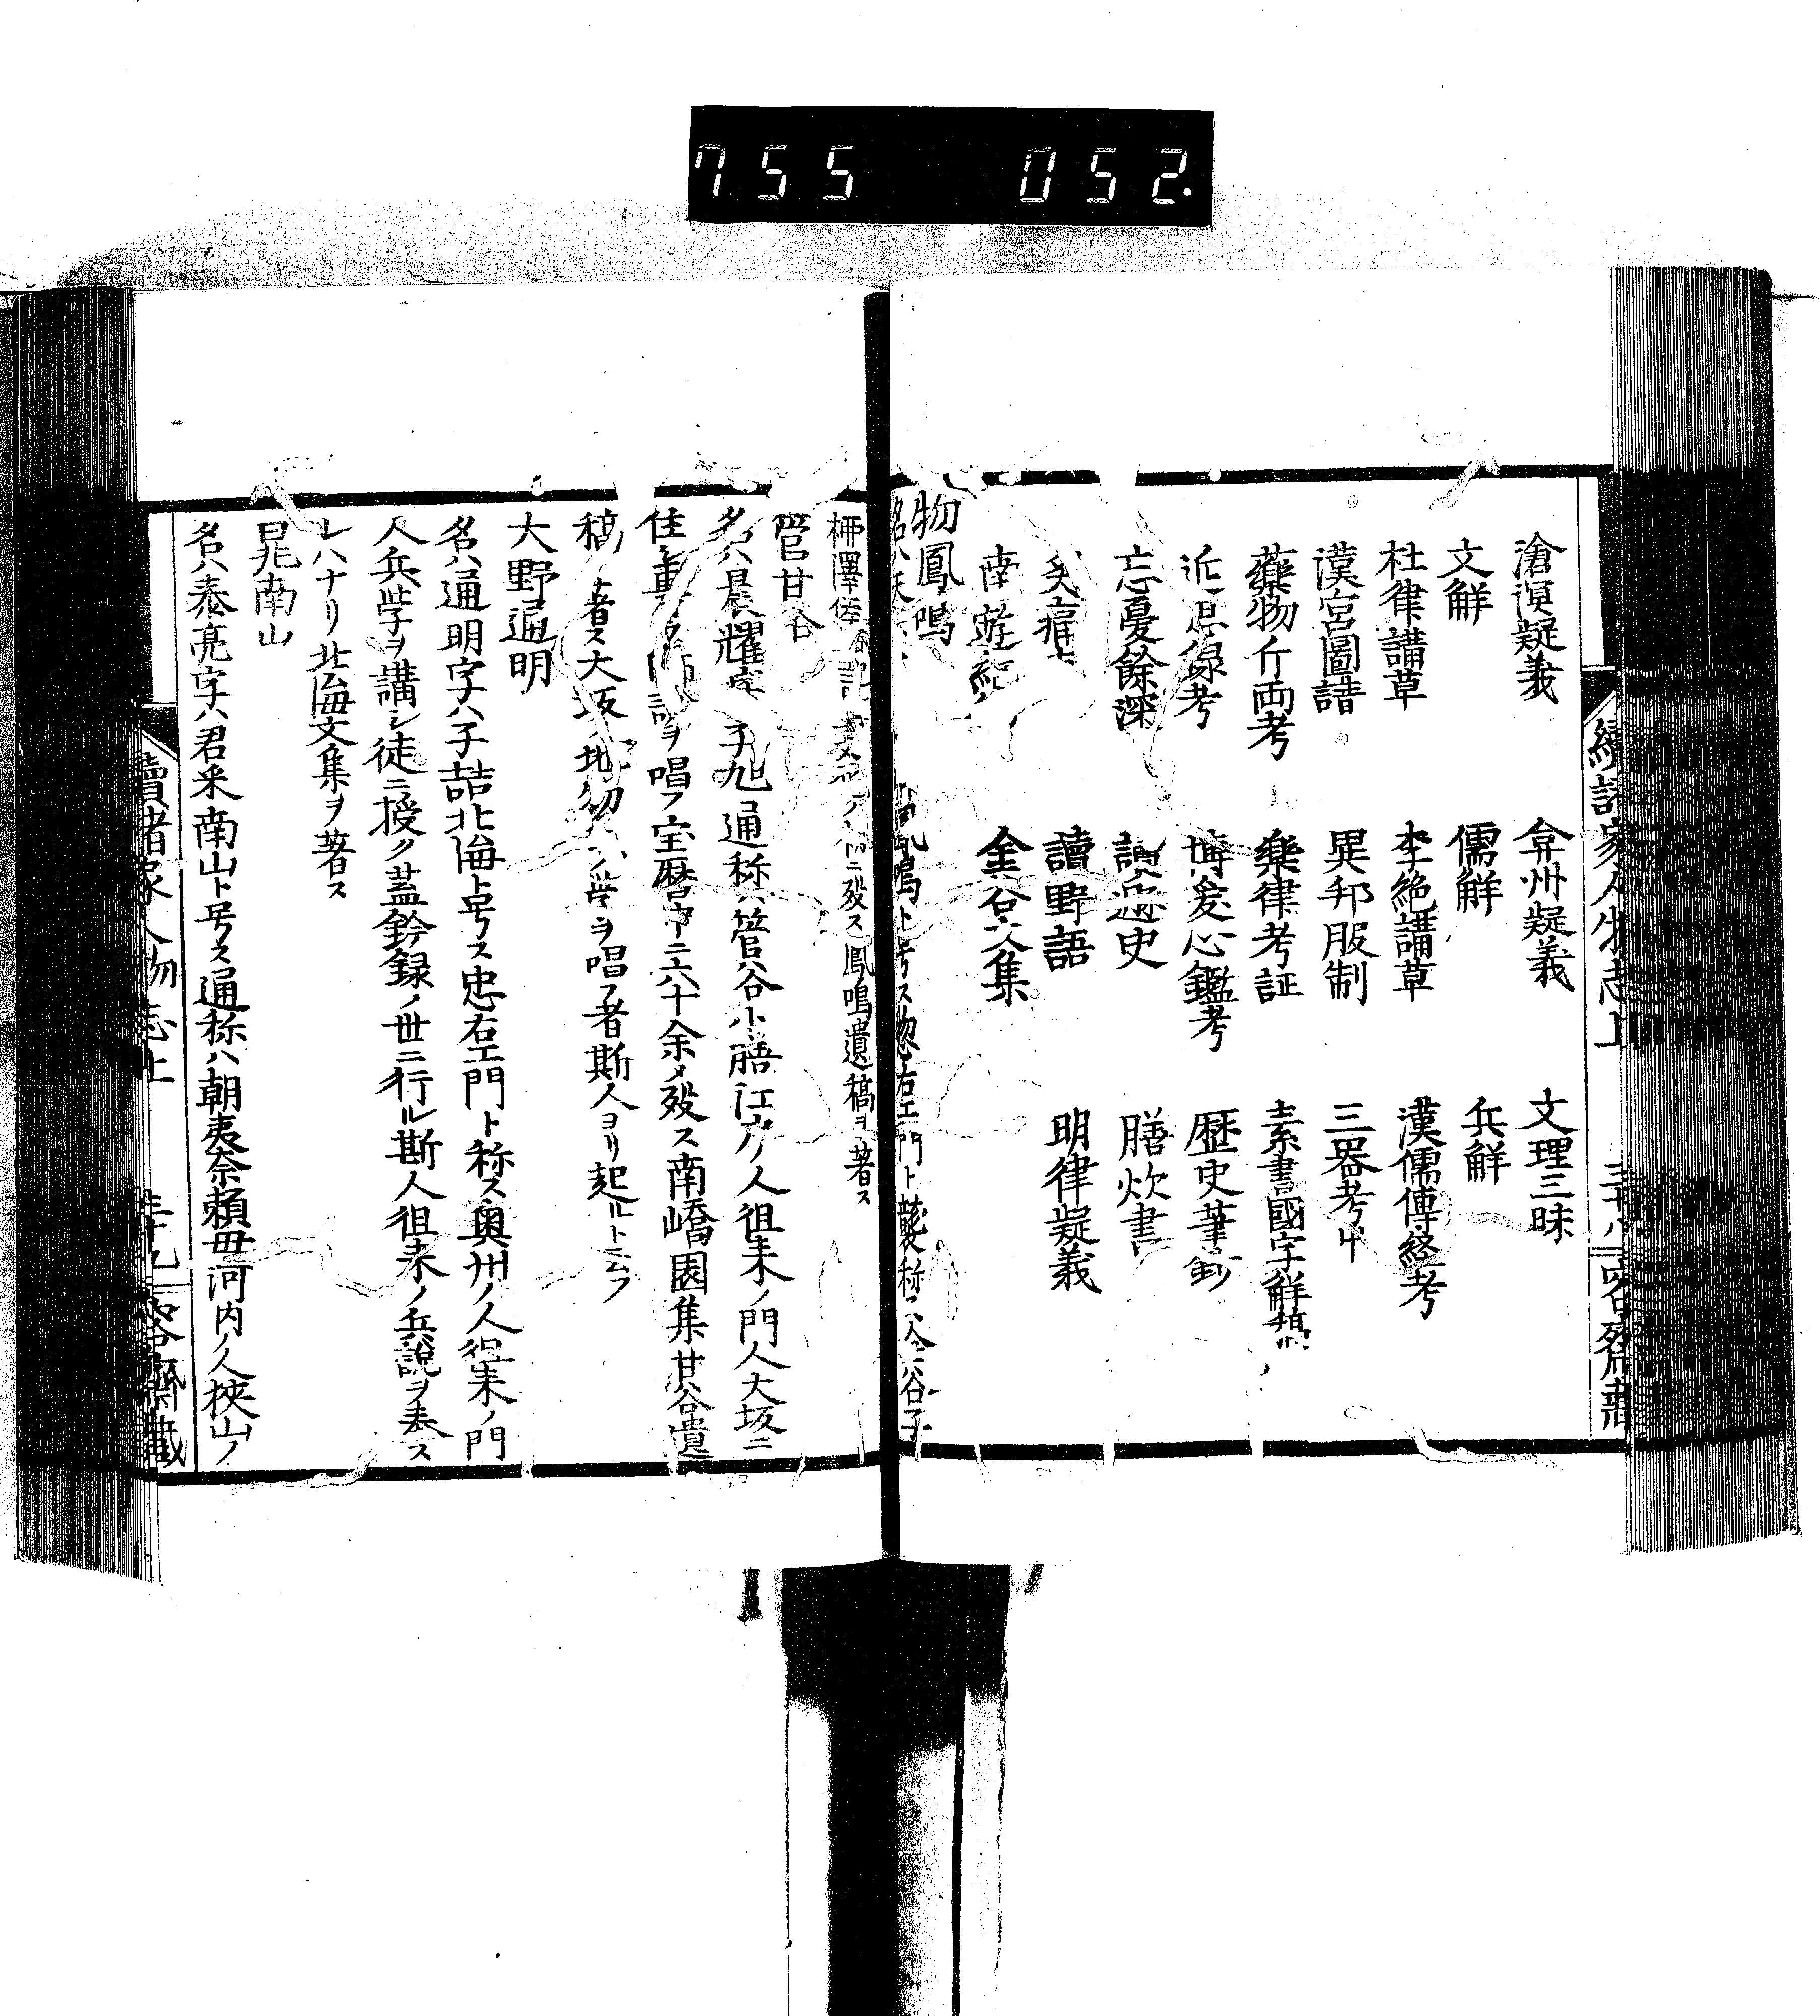 755 052.
續諸家人物志上 三十八 咬菜齋藏
滄溟疑義 弇州疑義 文理三昧
文觧 儒觧 兵觧
杜律講草 李絶講草 漢儒傳経考
漢宮圖譜 異邦服制 三器考
藥物斤両考 樂律考証 素書國字觧
近思録考 博愛心鑑考 歴史筆鈔
忘憂餘深 讀逊史 膳炊書
讀野語 明律疑義
南遊紀 金谷文集
物鳳鳴
名ハ 鳳鳴ト号ス惣右エ門ト 称ス金谷子
栁澤侯 記 ニ殁ス鳳鳴遺稿ヲ著ス
菅甘谷
名ハ晨耀 字 子旭通称ハ菅谷小膳江戸ノ人徂耒ノ門人大坂ニ
住 師説ヲ唱フ宝暦中ニ六十余メ殁ス南嶠園集甘谷遺
稿 著ス大坂ノ地初 学ヲ唱フ者斯人ヨリ起ルト云フ
大野通明
名ハ通明字ハ子喆北海ト号ス忠右エ門ト称ス奥州ノ人徂耒ノ門
人兵学ヲ講シ徒ニ授ク蓋鈐録ノ世ニ行ル斯人徂耒ノ兵説ヲ表ス
レハナリ北海文集ヲ著ス
晁南山
名ハ泰亮字ハ君釆南山ト号ス通称ハ朝夷奈頼毋河内ノ人挾山ノ
續諸家人物志上 三十九 藏